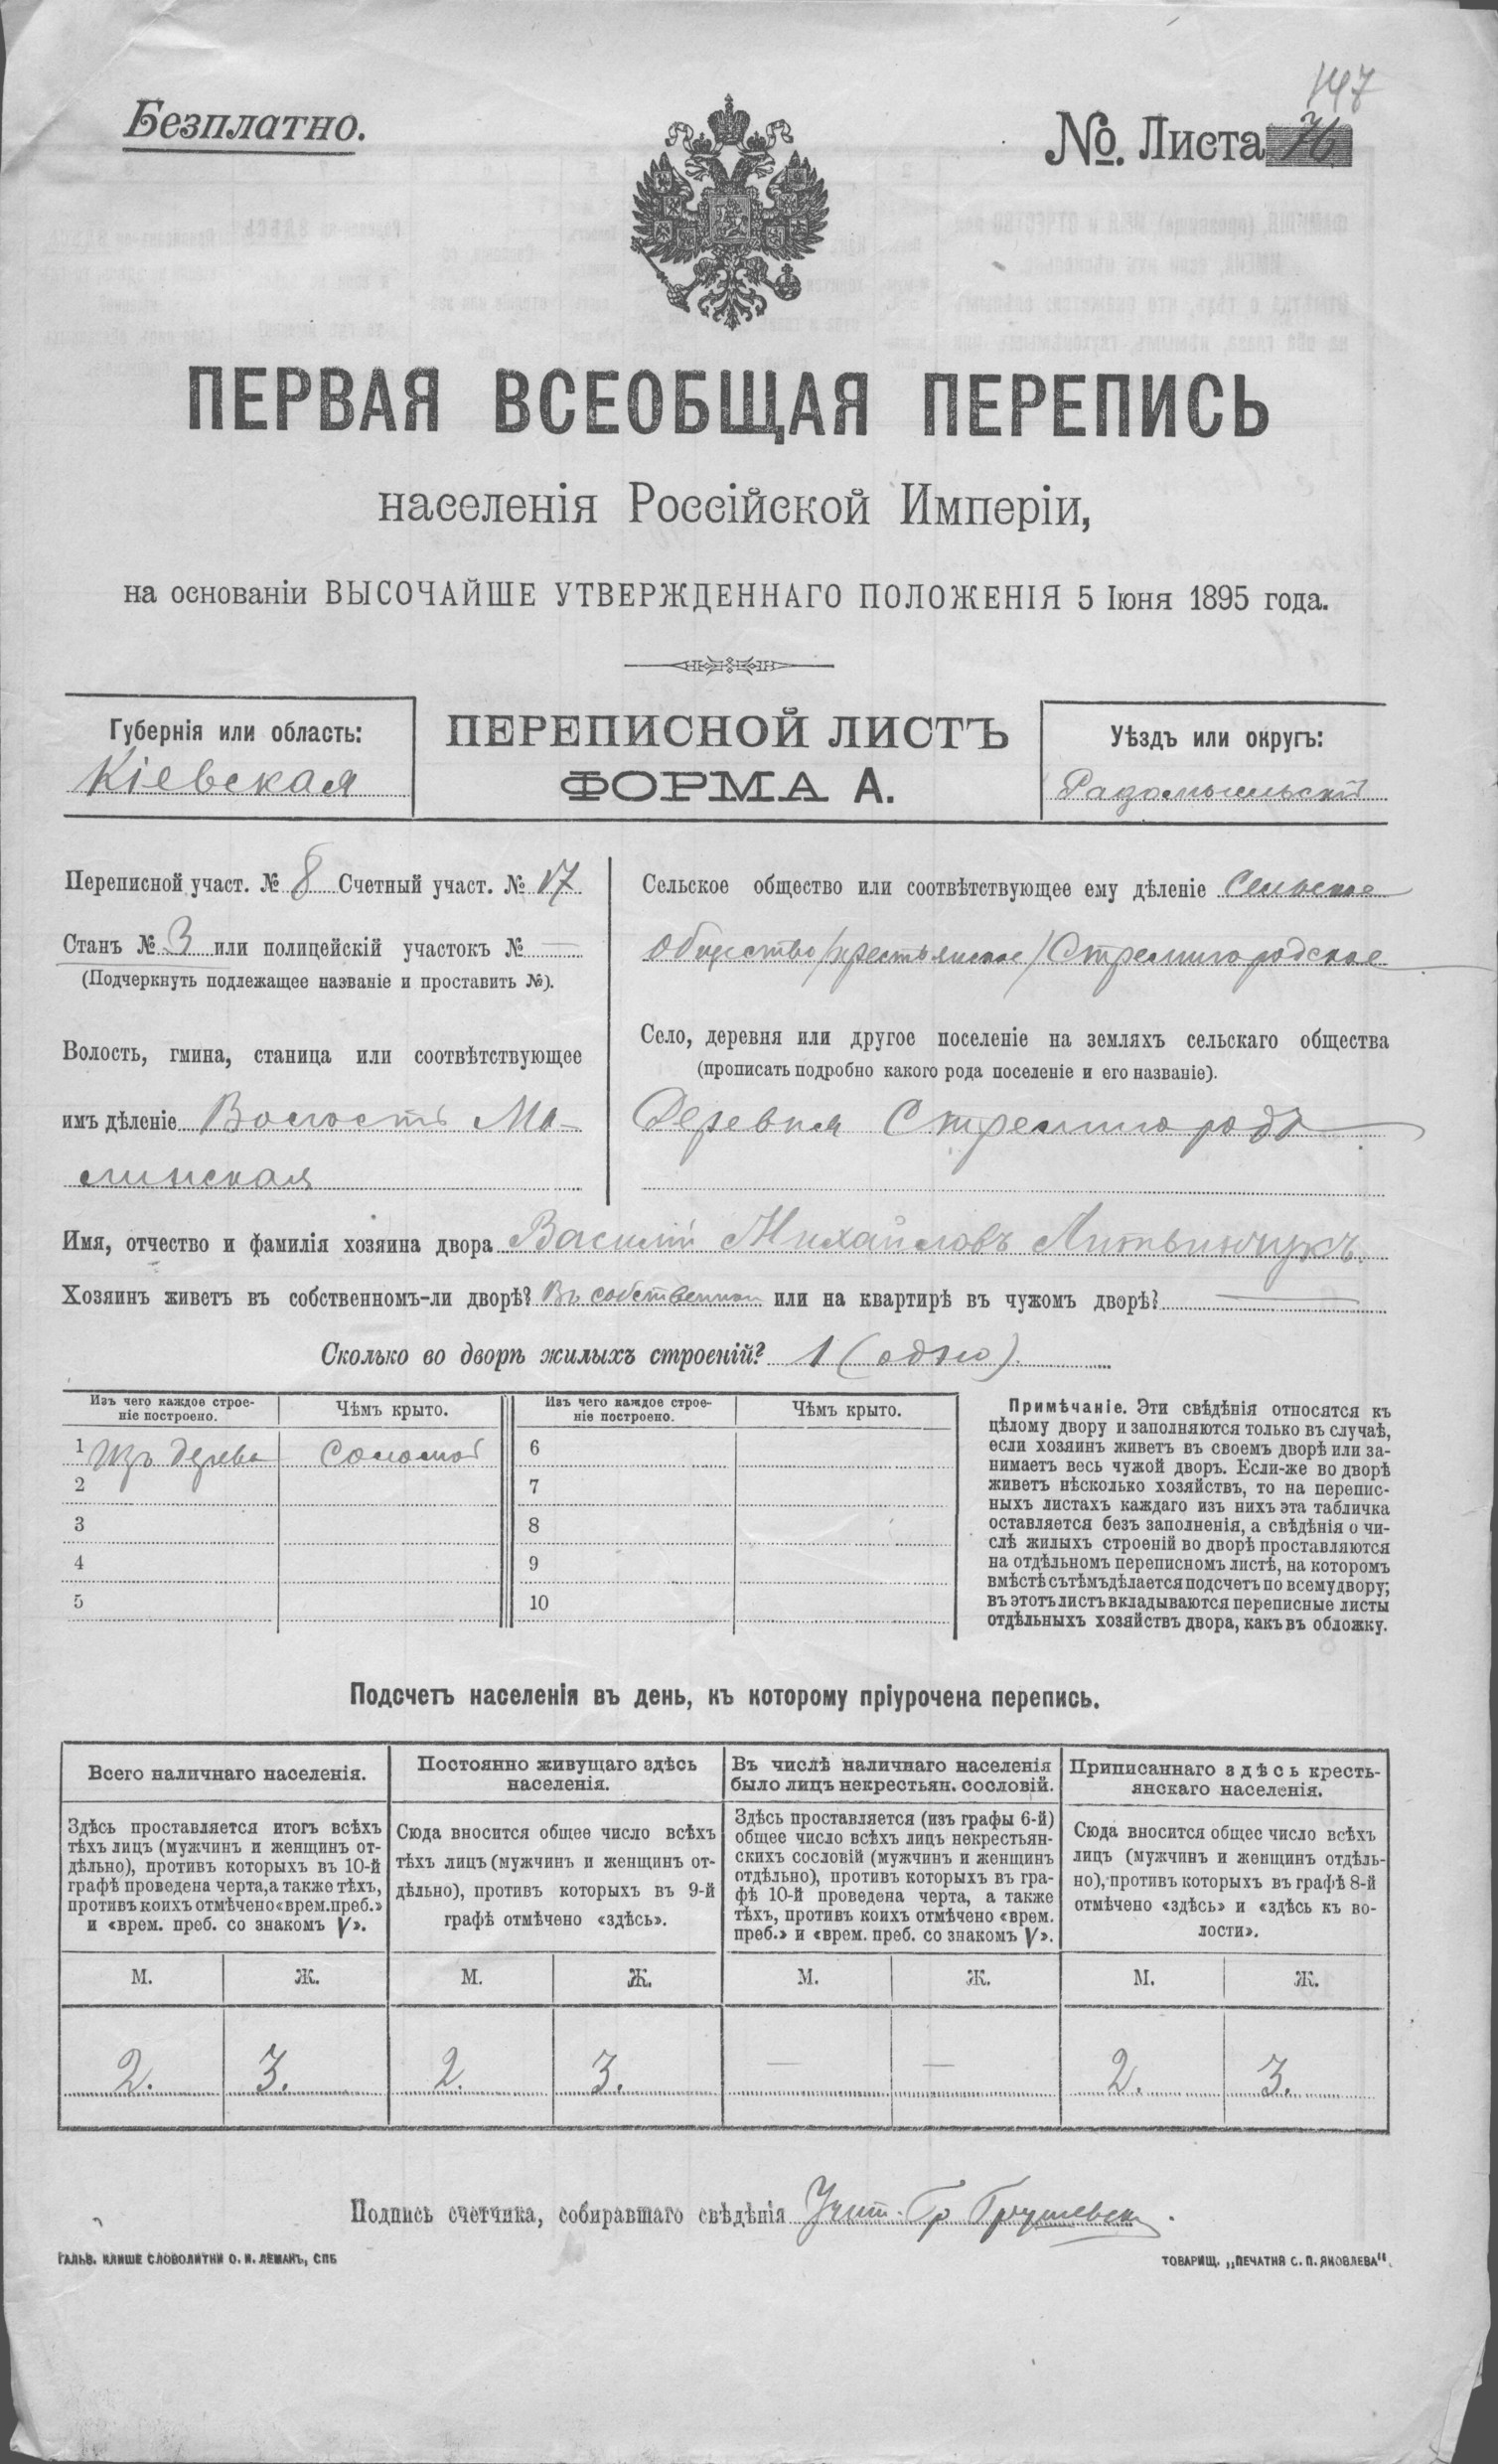 147
Безплатно.
№. Листа 76
ПЕРВАЯ ВСЕОБЩАЯ ПЕРЕПИСЬ
населенія Россійской Имперіи,
на основаніи ВЫСОЧАЙШЕ УТВЕРЖДЕННАГО ПОЛОЖЕНІЯ 5 Іюня 1895 года.
Губернія или область:
Кіевская
ПЕРЕПИСНОЙ ЛИСТЪ
ФОРМА А.
Уѣздъ или округъ:
Радомысльскій
Переписной участ. № 8 Счетный участ. № 17
Станъ № 3 или полицейскій участокъ № —
(Подчеркнуть подлежащее названіе и проставить №).
Волость, гмина, станица или соотвѣтствующее
имъ дѣленіе Волость Ма-
линская
Сельское общество или соотвѣтствующее ему дѣленіе Сельское
общество /крестьянское/ Стремигородское
Село, деревня или другое поселеніе на земляхъ сельскаго общества
(прописать подробно какого рода поселеніе и его названіе).
Деревня Стремигородъ
Имя, отчество и фамилія хозяина двора Василій Михайловъ Литвинчукъ.
Хозяинъ живетъ въ собственномъ-ли дворѣ? Въ собственном или на квартирѣ въ чужомъ дворѣ? —
Сколько во дворѣ жилыхъ строеній? 1 (одно).
Изъ чего каждое строе-
ніе построено.
Чѣмъ крыто.
Изъ чего каждое строе-
ніе построено.
Чѣмъ крыто.
1 Изъ дерева Соломой 6
2 7
3 8
4 9
5 10
Примѣчаніе. Эти свѣдѣнія относятся къ
цѣлому двору и заполняются только въ случаѣ,
если хозяинъ живетъ въ своемъ дворѣ или за-
нимаетъ весь чужой дворъ. Если-же во дворѣ
живетъ нѣсколько хозяйствъ, то на перепис-
ныхъ листахъ каждаго изъ нихъ эта табличка
оставляется безъ заполненія, а свѣдѣнія о чи-
слѣ жилыхъ строеній во дворѣ проставляются
на отдѣльномъ переписномъ листѣ, на которомъ
вмѣстѣ съ тѣмъ дѣлается подсчетъ по всему двору;
въ этотъ листъ вкладываются переписные листы
отдѣльныхъ хозяйствъ двора, какъ въ обложку.
Подсчетъ населенія въ день, къ которому пріурочена перепись.
Всего наличнаго населенія.
Здѣсь проставляется итогъ всѣхъ
тѣхъ лицъ (мужчинъ и женщинъ от-
дѣльно), противъ которыхъ въ 10-й
графѣ проведена черта, а также тѣхъ,
противъ коихъ отмѣчено «врем. преб.»
и «врем. преб. со знакомъ V».
Постоянно живущаго здѣсь
населенія.
Сюда вносится общее число всѣхъ
тѣхъ лицъ (мужчинъ и женщинъ от-
дѣльно), противъ которыхъ въ 9-й
графѣ отмѣчено «здѣсь».
Въ числѣ наличнаго населенія
было лицъ некрестьян. сословій.
Здѣсь проставляется (изъ графы 6-й)
общее число всѣхъ лицъ некрестьян-
скихъ сословій (мужчинъ и женщинъ
отдѣльно), противъ которыхъ въ гра-
фѣ 10-й проведена черта, а также
тѣхъ, противъ коихъ отмѣчено «врем.
преб.» и «врем. преб. со знакомъ V».
Приписаннаго здѣсь кресть-
янскаго населенія.
Сюда вносится общее число всѣхъ
лицъ (мужчинъ и женщинъ отдѣль-
но), противъ которыхъ въ графѣ 8-й
отмѣчено «здѣсь» и «здѣсь къ во-
лости».
М. Ж. М. Ж. М. Ж. М. Ж.
2. 3. 2. 3. — — 2. 3.
Подпись счетчика, собиравшаго свѣдѣнія Учит. Гр.
ГАЛЬВ. КЛИШЕ СЛОВОЛИТНИ О. И. ЛЕМАНЪ, СПБ
ТОВАРИЩ. „ПЕЧАТНЯ С. П. ЯКОВЛЕВА".